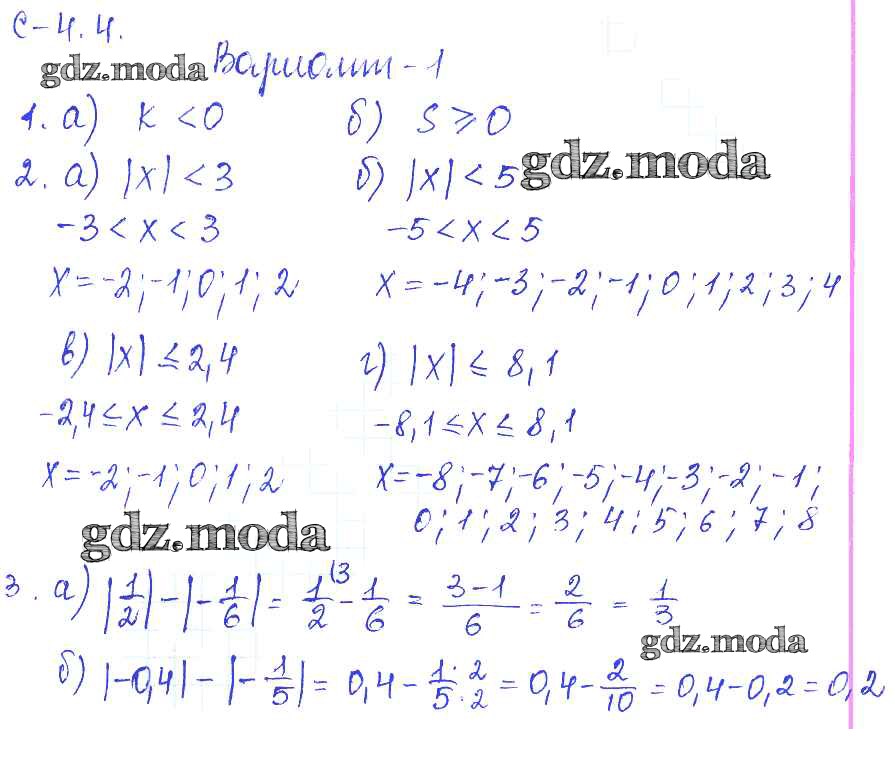 С-4.4.
gdz.moda Вариант-1
1. а) k < 0 б) s ⩾ 0
2. а) |x| < 3 б) |x| < 5 gdz.moda
-3 < x < 3 -5 < x < 5
x = -2; -1; 0; 1; 2 x = -4; -3; -2; -1; 0; 1; 2; 3; 4
в) |x| ≤ 2,4 г) |x| ≤ 8,1
-2,4 ≤ x ≤ 2,4 -8,1 ≤ x ≤ 8,1
x = -2; -1; 0; 1; 2 x = -8; -7; -6; -5; -4; -3; -2; -1;
0; 1; 2; 3; 4; 5; 6; 7; 8
gdz.moda
3. а) |1/2| - |-1/6| = 1/2 (3 - 1/6 = (3-1)/6 = 2/6 = 1/3
gdz.moda
б) |-0,4| - |-1/5| = 0,4 - (1·2)/(5·2) = 0,4 - 2/10 = 0,4 - 0,2 = 0,2